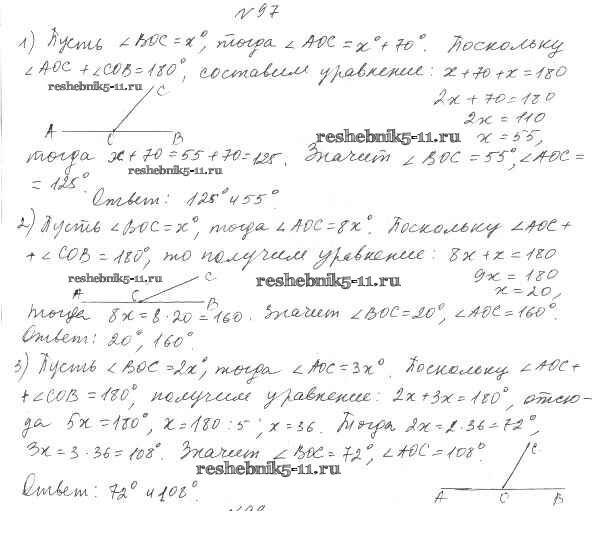 №97
1) Пусть ∠BOC = x°, тогда ∠AOC = x° + 70°. Поскольку
∠AOC + ∠COB = 180°, составим уравнение: x + 70 + x = 180
reshebnik5-11.ru
C
2x + 70 = 180
2x = 110
A
C
B
reshebnik5-11.ru
x = 55,
тогда x + 70 = 55 + 70 = 125. Значит ∠BOC = 55°, ∠AOC =
reshebnik5-11.ru
= 125°.
Ответ: 125° и 55°
2) Пусть ∠BOC = x°, тогда ∠AOC = 8x°. Поскольку ∠AOC +
+ ∠COB = 180°, то получим уравнение: 8x + x = 180
reshebnik5-11.ru
C
reshebnik5-11.ru
9x = 180
A
C
B
x = 20,
тогда 8x = 8 · 20 = 160. Значит ∠BOC = 20°, ∠AOC = 160°.
Ответ: 20°, 160°.
3) Пусть ∠BOC = 2x°, тогда ∠AOC = 3x°. Поскольку ∠AOC +
+ ∠COB = 180°, получим уравнение: 2x + 3x = 180°, отсю-
да 5x = 180°, x = 180 : 5, x = 36. Тогда 2x = 2 · 36 = 72°,
3x = 3 · 36 = 108°. Значит ∠BOC = 72°, ∠AOC = 108°.
reshebnik5-11.ru
C
Ответ: 72° и 108°.
A
O
B